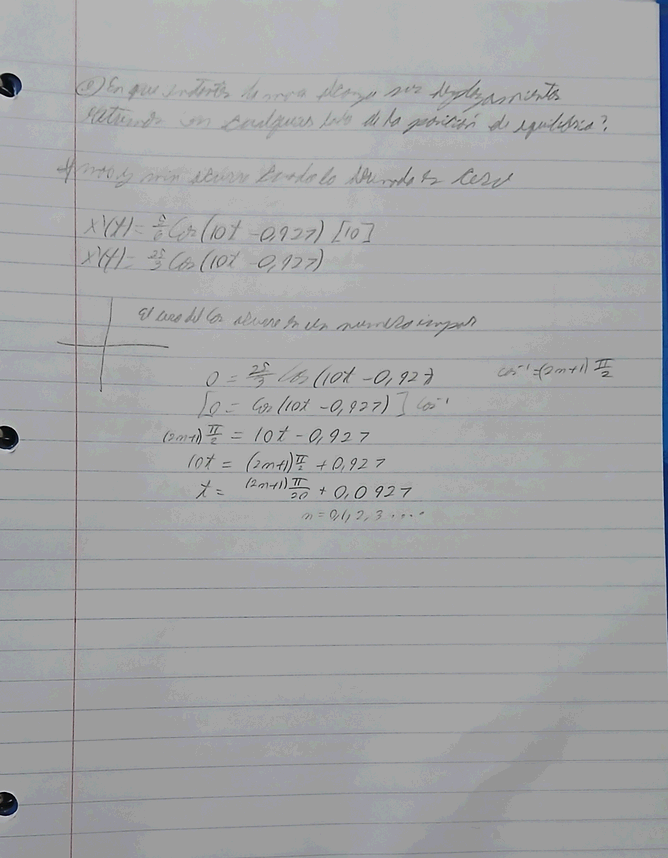 e) En que instantes la masa alcanza sus desplazamientos
extremos en cualquier lado de la posición de equilibrio?
max y min ocurre cuando la derivada es cero
x'(t) = 5/6 Cos(10t - 0,927) [10]
x'(t) = 25/3 Cos(10t - 0,927)
El cero del Cos ocurre en un numero impar
0 = 25/3 Cos(10t - 0,927) cos⁻¹ = (2n+1) π/2
[0 = Cos(10t - 0,927)] Cos⁻¹
(2n+1) π/2 = 10t - 0,927
10t = (2n+1) π/2 + 0,927
t = (2n+1) π/20 + 0,0927
n = 0,1,2,3....